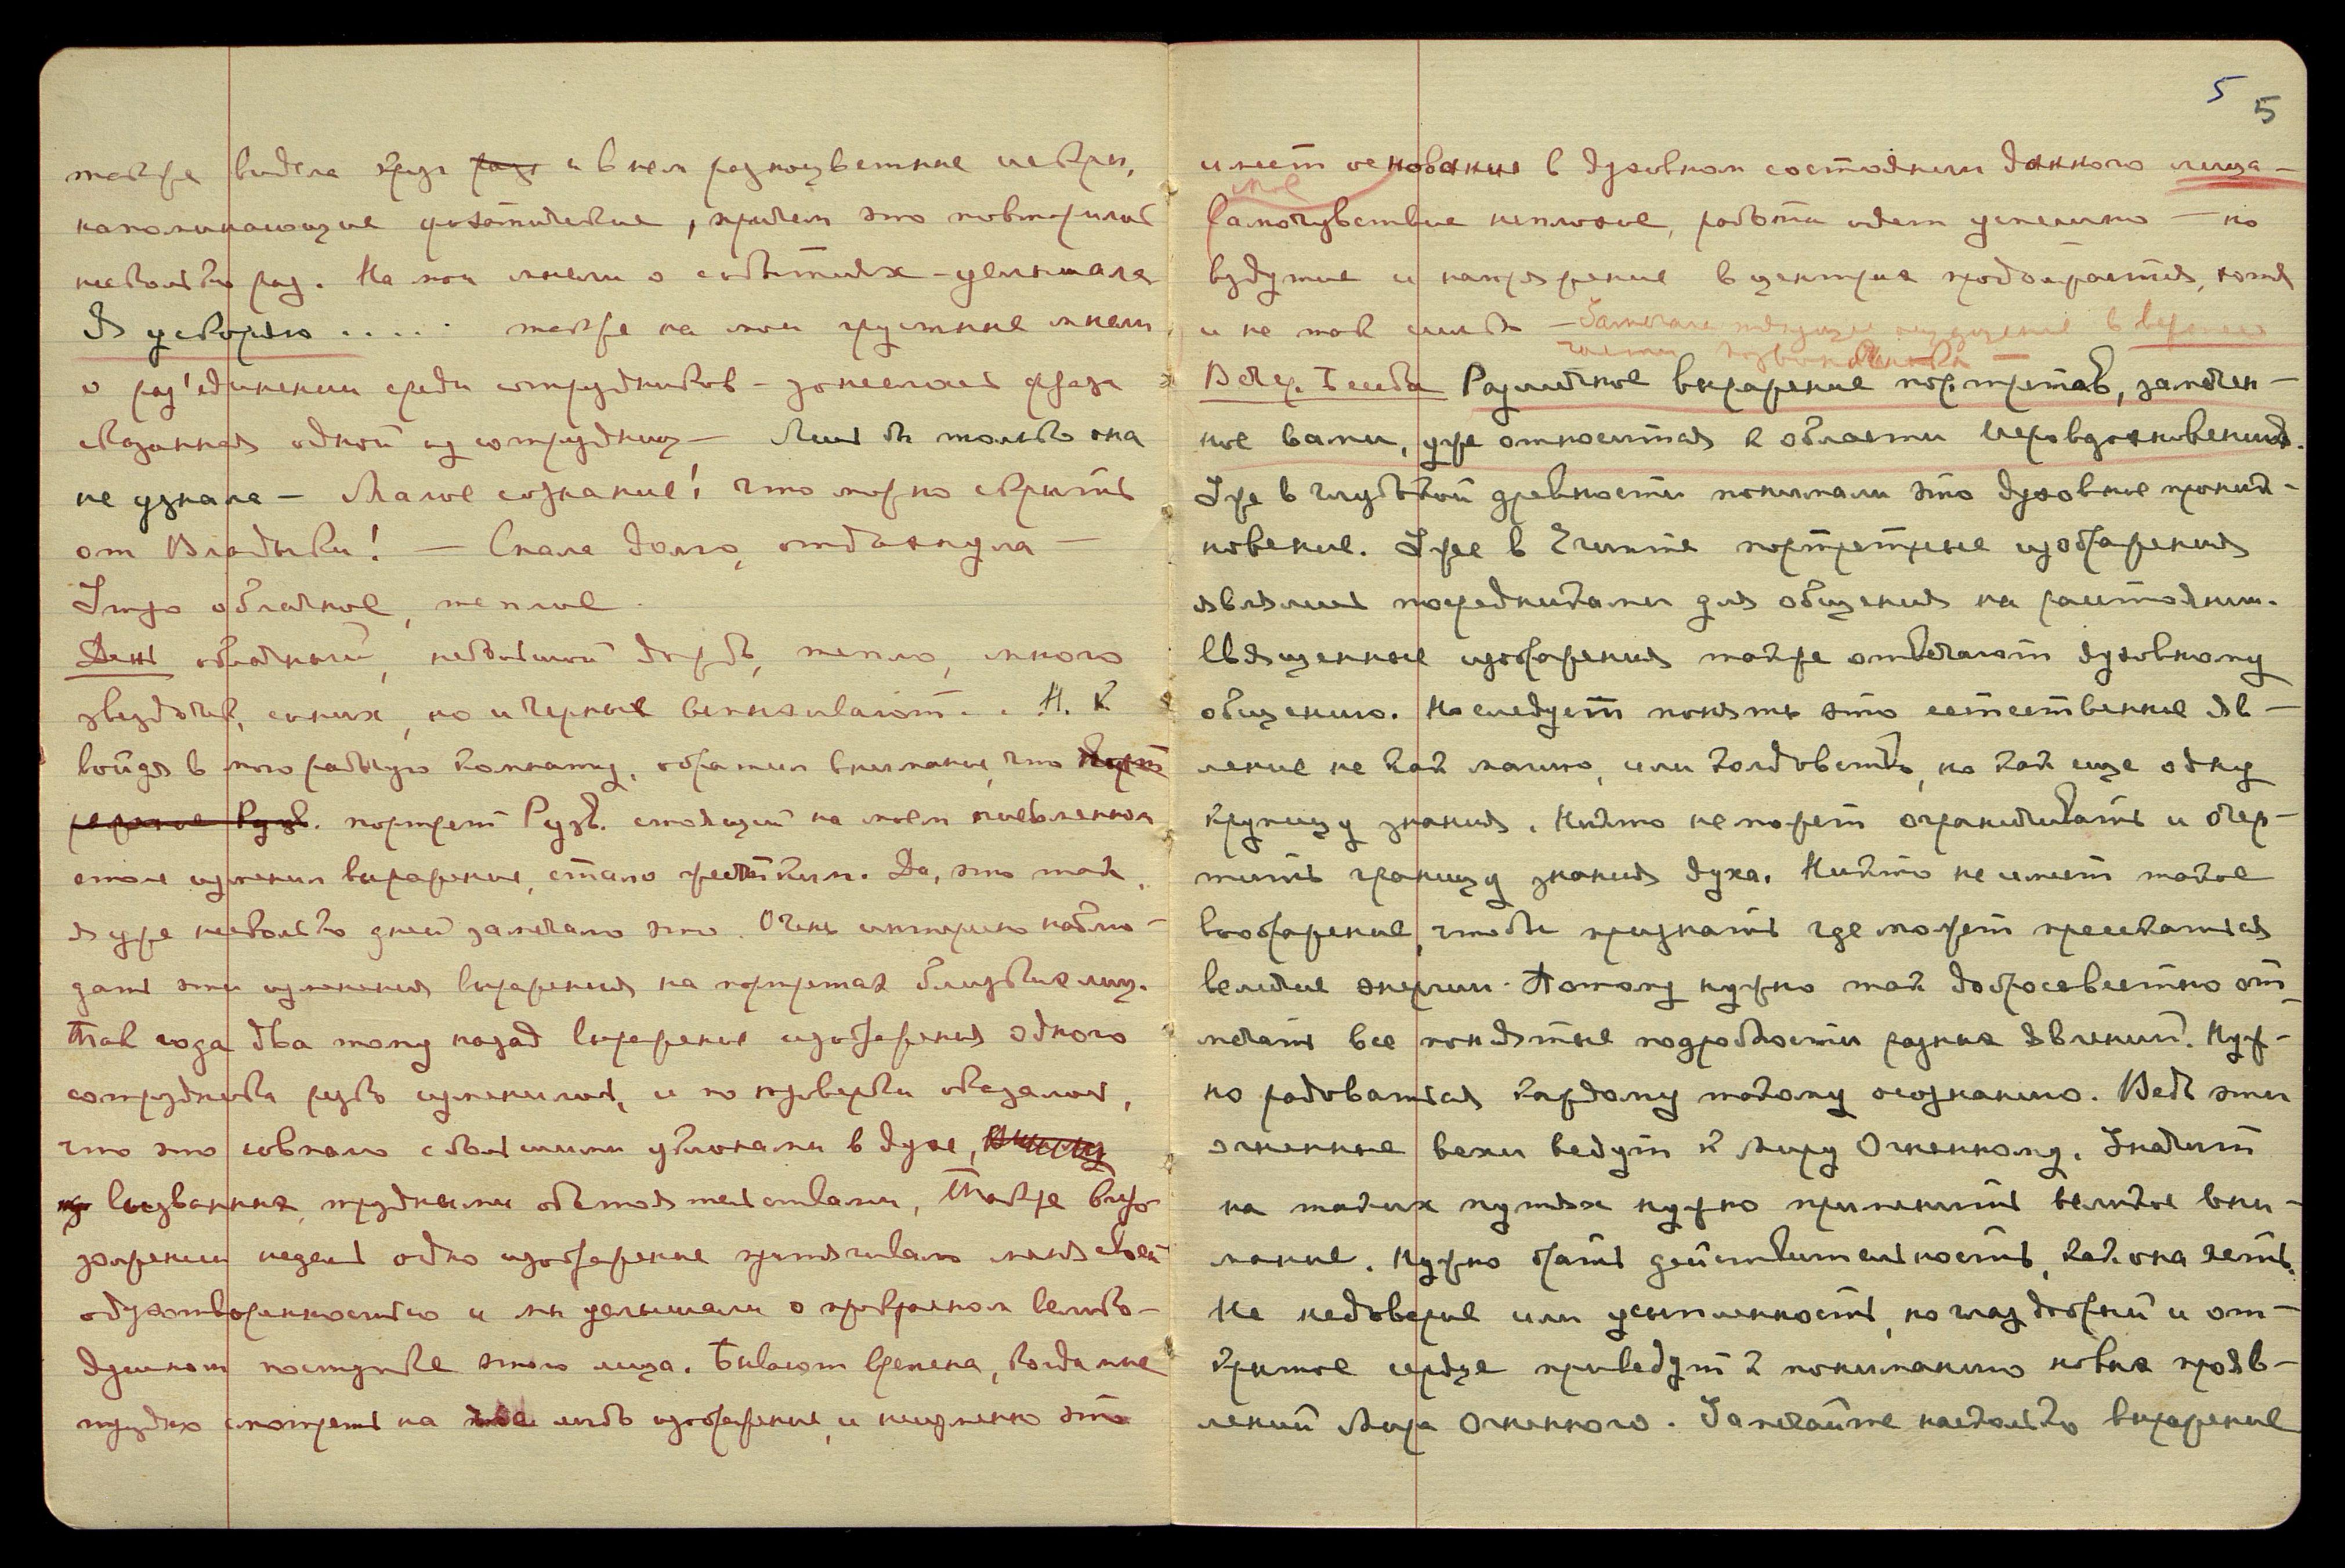 также видела круг и в нем разноцветные искры,
напоминающие фосфорические, причем это повторилось
несколько раз. На мои мысли о событиях - услышала
Я ускоряю ..... также на мои грустные мысли
о раз'единении среди сотрудников - донеслась фраза
сказанная одной из сотрудниц - Лишь бы только она
не узнала - Малое сознание! что можно скрыть
от Владыки! - Спала долго, отдохнула -
Утро облачное, теплое.
День облачный, небольшой дождь, тепло, много
звездочек, синих, но и черные вспыхивают. . Н. К
войдя в мою рабочую комнату, обратил внимание, что
Рузв. портрет Рузв. стоящий на моем письменном
столе изменил выражение, стало жестким. Да, это так,
я уже несколько дней замечаю это. Очень интересно наблю-
дать эти изменения выражения на портретах близких лиц.
Так года два тому назад выражение изображения одного
сотрудника резко изменилось, и по проверке оказалось,
что это совпало с большими уклонами в духе,
вызванных трудными обстоятельствами, Также в
недель одно изображение притягивало меня своей
одухотворенностью и мы услышали о прекрасном велико-
душном поступке этого лица. Бывают времена, когда мне
трудно смотреть на чье либо изображение, и неизменно это
5 5
имеет основание в духовном состоянии данного лица -
мое
Самочувствие неплохое, работа идет успешно - но
вздутие и напряжение в центрах продолжается, хотя
и не так сильно - Замечаю тянущее ощущение в верхней
части позвоночника
Вечер. Беседа Различное выражение портретов, замечен-
ное вами, уже относится к области Иеровдохновения.
Уже в глубокой древности понимали это духовное проник-
новение. Уже в Египте портретные изображения
являлись посредниками для общения на расстоянии.
Священные изображения также отвечают духовному
общению. Но следует понять это естественное яв-
ление не как магию, или колдовство, но как еще одну
крупицу знания. Никто не может ограничивать и очер-
тить границу знания духа. Никто не имеет такое
воображение, чтобы признать где может пресекаться
великие энергии. Потому нужно так добросовестно от-
мечать все понятые подробности разных явлений. Нуж-
но радоваться каждому такому осознанию. Ведь эти
огненные вехи ведут к Миру Огненному. Значит
на таких путях нужно применить великое вни-
мание. Нужно брать действительность, как она есть.
Не недоверие или усыпленность, но глаз добрый и от-
крытое сердце приведут к пониманию новых прояв-
лений Мира Огненного. Замечайте насколько выражение